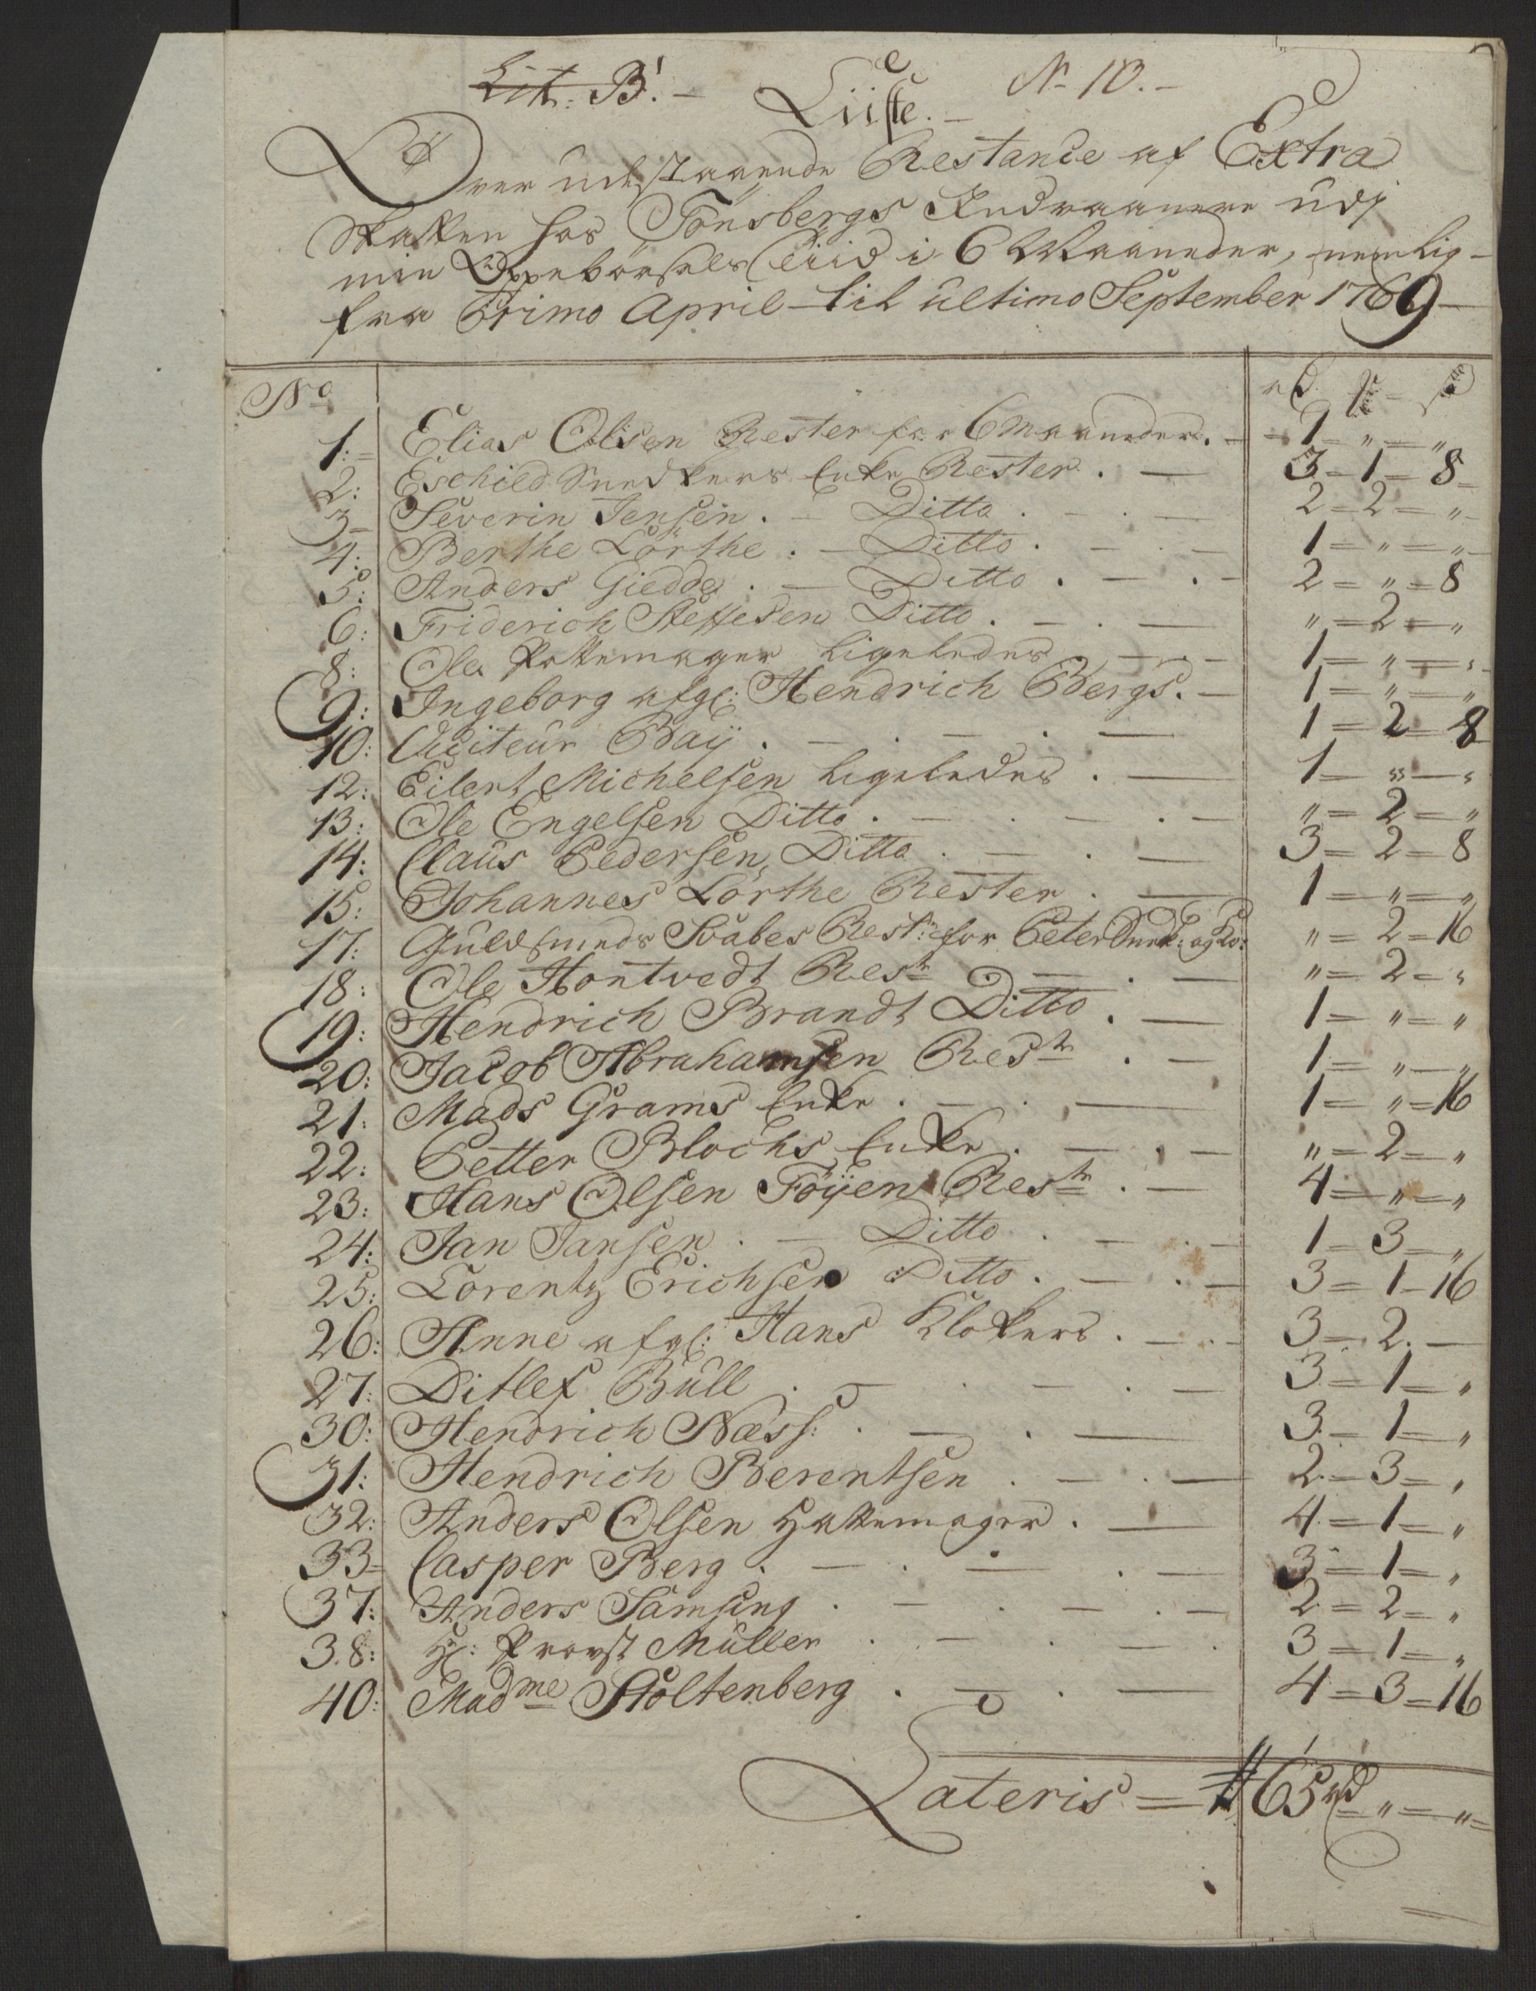 Lit: B! – No 10. –
Liiste. –
Over udestaaende Restance af Extra
Skatten hos Tönsbergs Indvaanere udj
min Oppebörsels Tiid i 6 Maaneder, nemlig –
fra Primo April – til ultimo September 1769 –
No rd
1: Elias Olisen Rester for 6 Maaneder. – 1 – „ – „
2: Eschild Snedkers Enke Rester. – 3 – 1 – 8
3 – Severin Jensen. – Ditto. – 2 – 2 – „
4: Berthe Lörthe. – Ditto. – 1 – „ – „
5: Anders Giedde. – Ditto. – 2 – „ – 8
6: Friderich Steffesen Ditto. – „ – 2 – „
8: Ole Pottemager ligeledes. – 1 – „ – „
9: Ingeborg afgl: Hendrich Bergs. – 1 – „ – „
10: Auditeur Baÿ. – 1 – 2 – 8
12: Eilert Michelsen ligeledes. – 1 – „ – „
13: Ole Engelsen Ditto. – „ – 2 – „
14: Claus Pedersen Ditto. – 3 – 2 – 8
15: Johannes Lörthe Rester. – 1 – „ – „
17: Guldsmeds Svabes Restr for Peter og „ – 2 – 16
18: Ole Hontvedt Restr – „ – 2 – „
19: Hendrich Brandt Ditto. – 1 – „ – „
20: Jacob Abrahamsen Restr. – 1 – „ – „
21: Mads Grams Enke. – 1 – „ – 16
22: Petter Blochs Enke. – „ – 2 – „
23: Hans Olsen Föÿen Restr. – 4 – „ – „
24: Jan Jansen. – Ditto. – 1 – 3 – „
25: Lorentz Erichsen Ditto. – 3 – 1 – 16
26: Anne afgl: Hans Klokers. – 3 – 2. –
27: Ditlef Bull. – 3 – 1 – „
30: Hendrich Næss: – 3 – 1 – „
31: Hendrich Berentsen. – 2 – 3 – „
32: Anders Olsen Hattemager. – 4 – 1 – „
33 – Casper Berg. – 3 – 1 – „
37: Anders Samsing. – 2 – 2 – „
38: Hr: Provst Müller. – 3 – 1 – „
40: Madme Stoltenberg. – 4 – 3 – 16
Lateris = 65 rd – „ – „